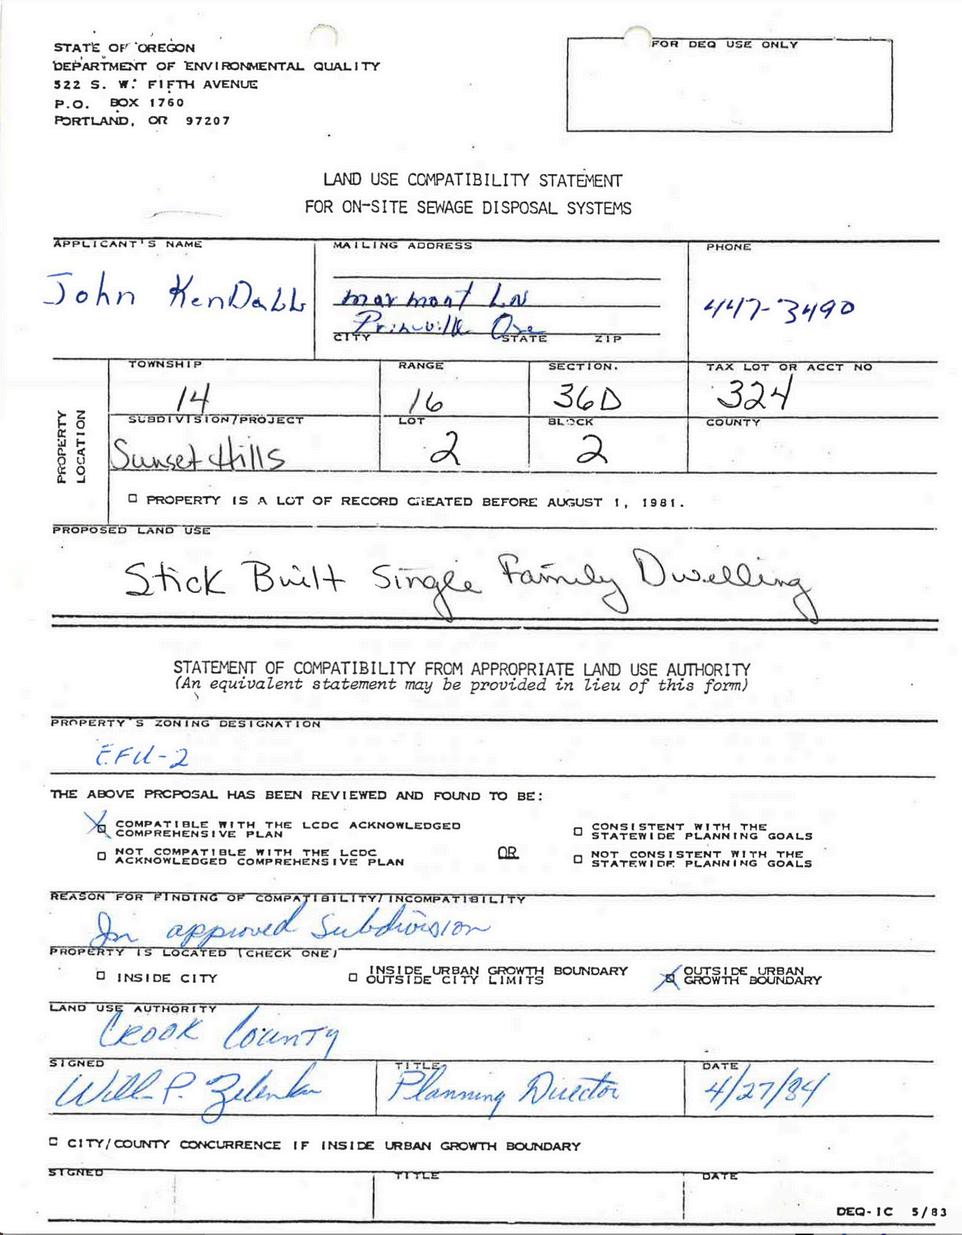 STATE OF OREGON
DEPARTMENT OF ENVIRONMENTAL QUALITY
522 S. W. FIFTH AVENUE
P.O. BOX 1760
PORTLAND, OR 97207
FOR DEQ USE ONLY
LAND USE COMPATIBILITY STATEMENT
FOR ON-SITE SEWAGE DISPOSAL SYSTEMS
APPLICANT'S NAME
John KenDaLL
MAILING ADDRESS
marmont LN
Prinville Ore
CITY STATE ZIP
PHONE
447-3490
PROPERTY LOCATION
TOWNSHIP
14
RANGE
16
SECTION.
36D
TAX LOT OR ACCT NO
324
SUBDIVISION/PROJECT
Sunset Hills
LOT
2
BLOCK
2
COUNTY
PROPERTY IS A LOT OF RECORD CREATED BEFORE AUGUST 1, 1981.
PROPOSED LAND USE
Stick Built Single Family Dwelling
STATEMENT OF COMPATIBILITY FROM APPROPRIATE LAND USE AUTHORITY
(An equivalent statement may be provided in lieu of this form)
PROPERTY'S ZONING DESIGNATION
EFU-2
THE ABOVE PROPOSAL HAS BEEN REVIEWED AND FOUND TO BE:
COMPATIBLE WITH THE LCDC ACKNOWLEDGED
COMPREHENSIVE PLAN
NOT COMPATIBLE WITH THE LCDC
ACKNOWLEDGED COMPREHENSIVE PLAN
OR
CONSISTENT WITH THE
STATEWIDE PLANNING GOALS
NOT CONSISTENT WITH THE
STATEWIDE PLANNING GOALS
REASON FOR FINDING OF COMPATIBILITY/INCOMPATIBILITY
In approved Subdivision
PROPERTY IS LOCATED (CHECK ONE)
INSIDE CITY
INSIDE URBAN GROWTH BOUNDARY
OUTSIDE CITY LIMITS
OUTSIDE URBAN
GROWTH BOUNDARY
LAND USE AUTHORITY
CROOK County
SIGNED
Will P. Zelenka
TITLE
Planning Director
DATE
4/27/84
CITY/COUNTY CONCURRENCE IF INSIDE URBAN GROWTH BOUNDARY
SIGNED
TITLE
DATE
DEQ-1C 5/83